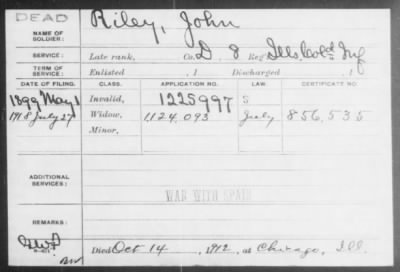 DEAD
NAME OF SOLDIER: Riley, John
SERVICE: Late rank, Co. D 8 Reg't Ills. Col'd Inf
TERM OF SERVICE: Enlisted , 1 Discharged , 1
DATE OF FILING. CLASS. APPLICATION NO. LAW. CERTIFICATE NO.
1899 May 1 Invalid, 1225997 S
1918 July 27 Widow, 1.124.093 July 856,535
Minor,
ADDITIONAL SERVICES:
WAR WITH SPAIN
REMARKS:
Died Oct 14, 1912, at Chicago, Ill.